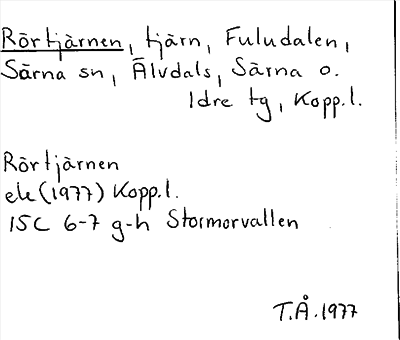 Rörtjärnen, tjärn, Fuludalen,
Särna sn, Älvdals, Särna o.
Idre tg, Kopp.l.
Rörtjärnen
ek (1977) Kopp.l.
15C 6-7 g-h Stormorvallen
T.Å. 1977